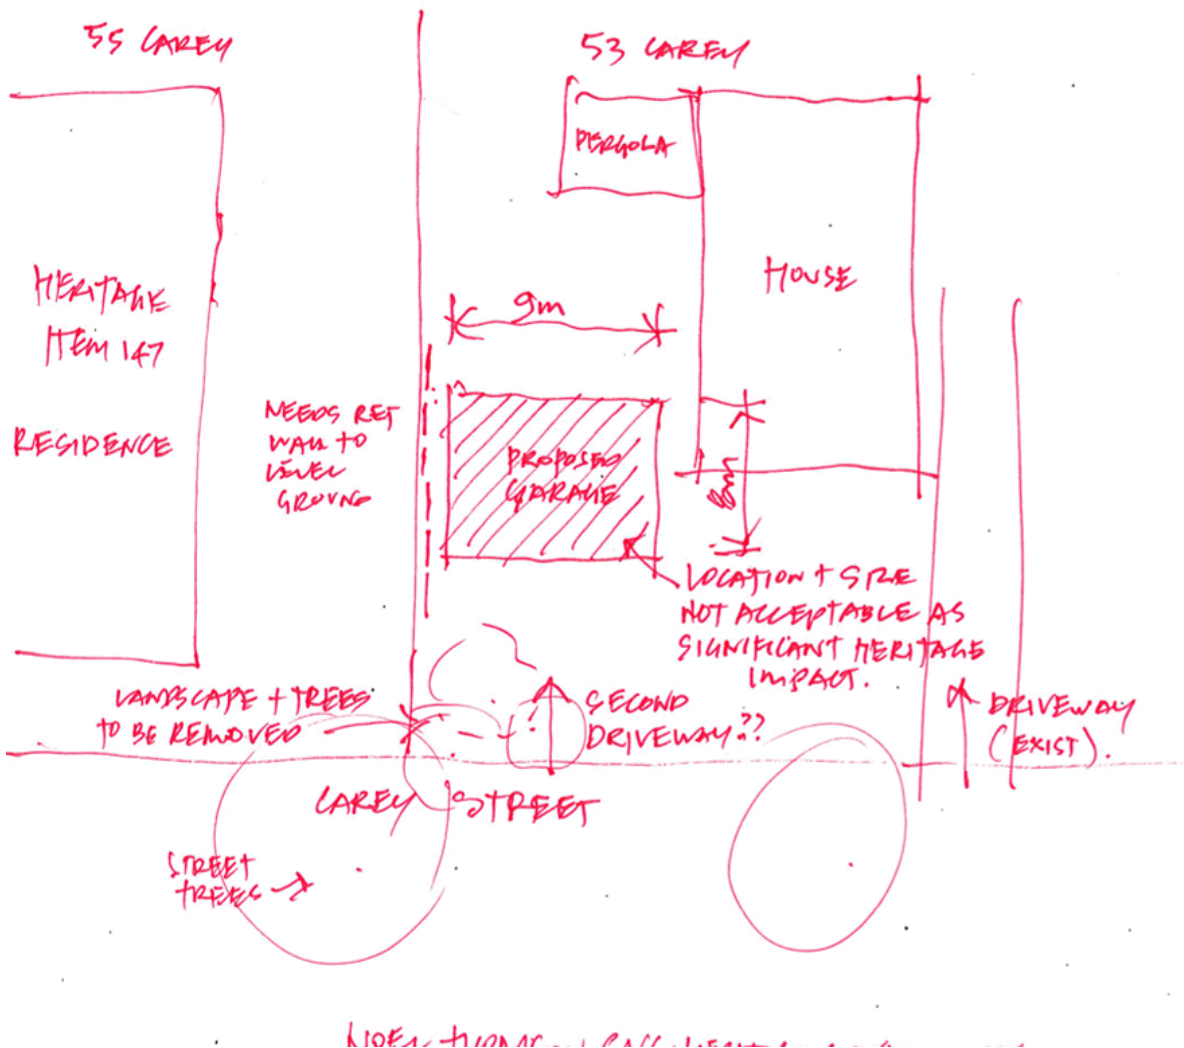 55 CAREY
53 CAREY
PERGOLA
HOUSE
HERITAGE
ITEM 147
RESIDENCE
9m
NEEDS RET
WALL TO
LEVEL
GROUND
PROPOSED
GARAGE
8m
LOCATION + SIZE
NOT ACCEPTABLE AS
SIGNIFICANT HERITAGE
IMPACT.
LANDSCAPE + TREES
TO BE REMOVED
SECOND
DRIVEWAY??
DRIVEWAY
(EXIST).
CAREY STREET
STREET
TREES